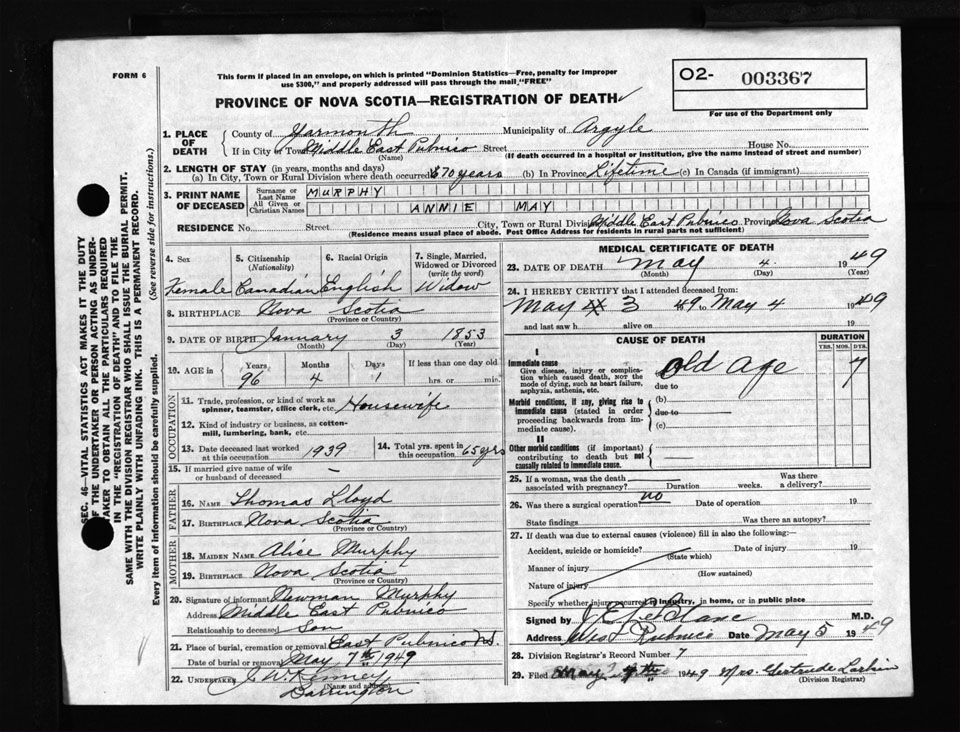 FORM 6
This form if placed in an envelope, on which is printed "Dominion Statistics—Free, penalty for improper
use $300," and properly addressed will pass through the mail "FREE"
O2- 003367
For use of the Department only
PROVINCE OF NOVA SCOTIA—REGISTRATION OF DEATH
1. PLACE OF DEATH
County of Yarmouth Municipality of Argyle
If in City or Town Middle East Pubnico Street House No.
(Name) (If death occurred in a hospital or institution, give the name instead of street and number)
2. LENGTH OF STAY (in years, months and days)
(a) In City, Town or Rural Division where death occurred 70 years (b) In Province Lifetime (c) In Canada (if immigrant)
3. PRINT NAME OF DECEASED
Surname or Last Name MURPHY
All Given or Christian Names ANNIE MAY
RESIDENCE No. Street City, Town or Rural Division Middle East Pubnico Province Nova Scotia
(Residence means usual place of abode. Post Office Address for residents in rural parts not sufficient)
4. Sex
Female
5. Citizenship
(Nationality)
Canadian
6. Racial Origin
English
7. Single, Married,
Widowed or Divorced
(write the word)
Widow
8. BIRTHPLACE Nova Scotia
(Province or Country)
9. DATE OF BIRTH January 3 1853
(Month) (Day) (Year)
10. AGE in
Years Months Days If less than one day old
96 4 1 hrs. or min.
OCCUPATION
11. Trade, profession, or kind of work as
spinner, teamster, office clerk, etc. Housewife
12. Kind of industry or business, as cotton-
mill, lumbering, bank, etc.
13. Date deceased last worked
at this occupation 1939
14. Total yrs. spent in
this occupation 65 yrs
15. If married give name of wife
or husband of deceased —
FATHER
16. NAME Thomas Lloyd
17. BIRTHPLACE Nova Scotia
(Province or Country)
MOTHER
18. MAIDEN NAME Alice Murphy
19. BIRTHPLACE Nova Scotia
(Province or Country)
20. Signature of informant Newman Murphy
Address Middle East Pubnico
Relationship to deceased Son
21. Place of burial, cremation or removal East Pubnico N.S.
Date of burial or removal May 7th 1949
22. UNDERTAKER J. W. Kenney
(Name and address)
Barrington
MEDICAL CERTIFICATE OF DEATH
23. DATE OF DEATH May 4 1949
(Month) (Day) (Year)
24. I HEREBY CERTIFY that I attended deceased from:
May 3 49 to May 4 1949
and last saw h alive on 19
CAUSE OF DEATH
DURATION
YRS. MOS. DYS.
I
Immediate cause
Give disease, injury or complica-
tion which caused death, NOT the
mode of dying, such as heart failure,
asphyxia, asthenia, etc.
(a) Old Age 7
due to
Morbid conditions, if any, giving rise to
immediate cause (stated in order
proceeding backwards from im-
mediate cause).
(b)
due to
(c)
II
Other morbid conditions (if important)
contributing to death but not
causally related to immediate cause.
25. If a woman, was the death
associated with pregnancy? Duration weeks. Was there
a delivery?
26. Was there a surgical operation? no Date of operation 19
State findings Was there an autopsy?
27. If death was due to external causes (violence) fill in also the following:-
Accident, suicide or homicide? Date of injury 19
(State which)
Manner of injury
(How sustained)
Nature of injury
Specify whether injury occurred in industry, in home, or in public place
Signed by M.D.
Address West Pubnico Date May 5 1949
28. Division Registrar's Record Number 7
29. Filed May 7th 1949 Mrs. Gertrude Larkin
(Division Registrar)
SEC. 46—VITAL STATISTICS ACT MAKES IT THE DUTY
OF THE UNDERTAKER OR PERSON ACTING AS UNDER-
TAKER TO OBTAIN ALL THE PARTICULARS REQUIRED
IN THE "REGISTRATION OF DEATH" AND TO FILE THE
SAME WITH THE DIVISION REGISTRAR WHO SHALL ISSUE THE BURIAL PERMIT.
WRITE PLAINLY WITH UNFADING INK. THIS IS A PERMANENT RECORD.
Every item of information should be carefully supplied. (See reverse side for instructions.)